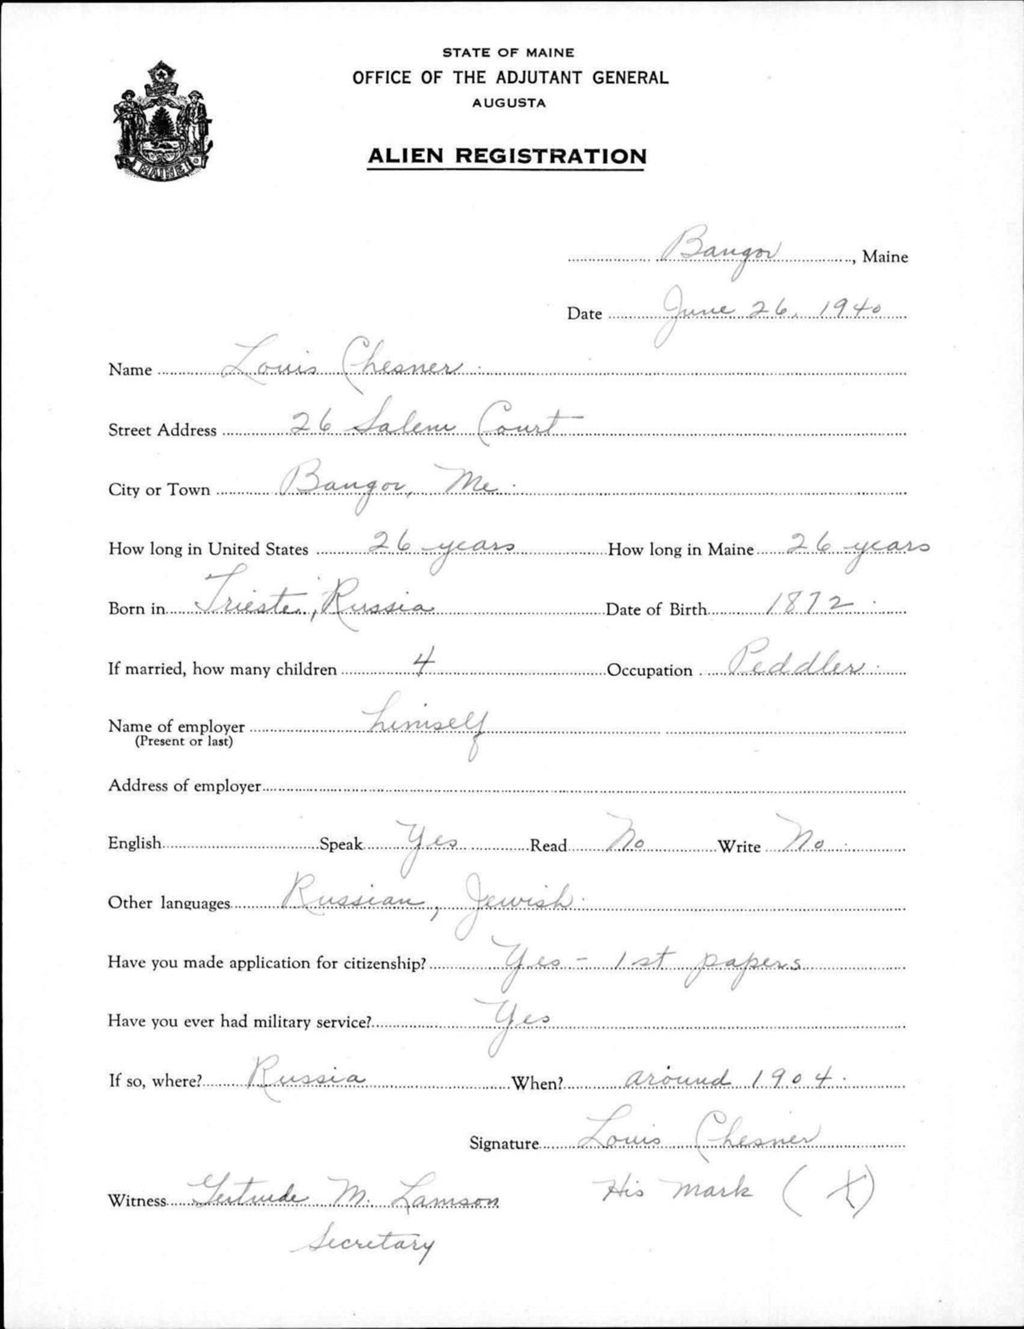 STATE OF MAINE
OFFICE OF THE ADJUTANT GENERAL
AUGUSTA
ALIEN REGISTRATION
MAINE
Bangor, Maine
Date June 26, 1940
Name Louis Chesner
Street Address 26 Salem Court
City or Town Bangor, Me.
How long in United States 26 years How long in Maine 26 years
Born in Trieste, Russia Date of Birth 1872
If married, how many children 4 Occupation Peddler
Name of employer himself
(Present or last)
Address of employer
English Speak Yes Read No Write No
Other languages Russian, Jewish
Have you made application for citizenship? Yes - 1st papers
Have you ever had military service? Yes
If so, where? Russia When? around 1904
Signature Louis Chesner
Witness Gertrude M. Lamson His mark (X)
Secretary